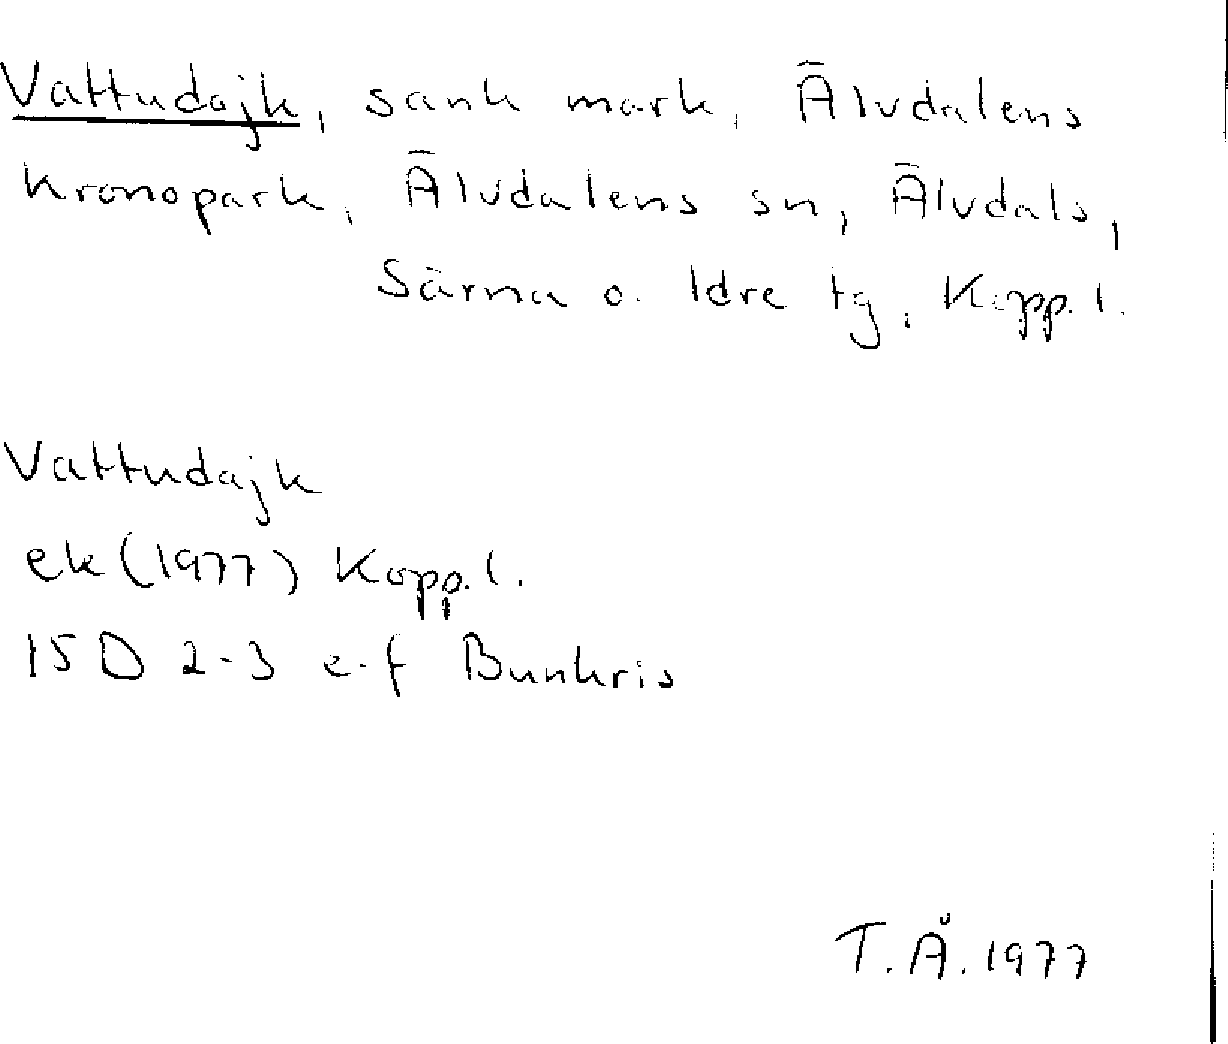 Vattudajk, sank mark, Älvdalens
kronopark, Älvdalens sn, Älvdals,
Särna o. Idre tg, Kopp. l.
Vattudajk
ek (1977) Kopp. l.
15 D 2-3 e-f Bunkris
T. Å. 1977